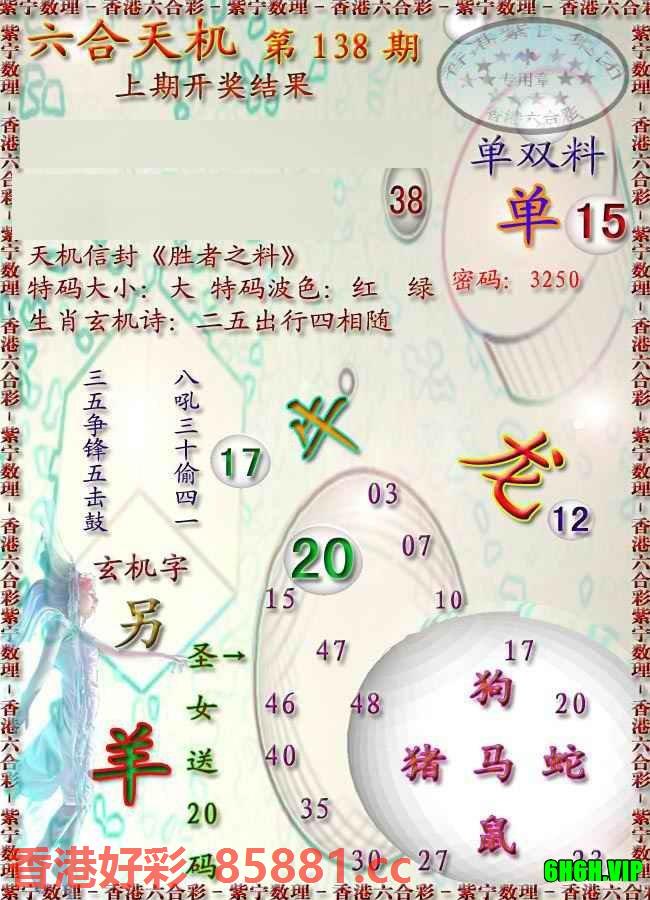 紫宁数理－香港六合彩－紫宁数理－香港六合彩－紫宁数理－香港六合彩
六合天机 第 138 期
上期开奖结果
专用章
香港六合彩
单双料
单 15
38
天机信封《胜者之料》
特码大小：大 特码波色：红 绿
密码：3250
生肖玄机诗：二五出行四相随
三五争锋五击鼓
八吼三十偷四一
17
12
03
20
07
15
10
玄机字
另
47
17
圣女送20码
→
46
48
狗
20
羊
40
猪 马 蛇
35
鼠
30
27
香港好彩 85881.cc
6H6H.VIP
紫宁数理－香港六合彩－紫宁数理－香港六合彩－紫宁数理－香港六合彩